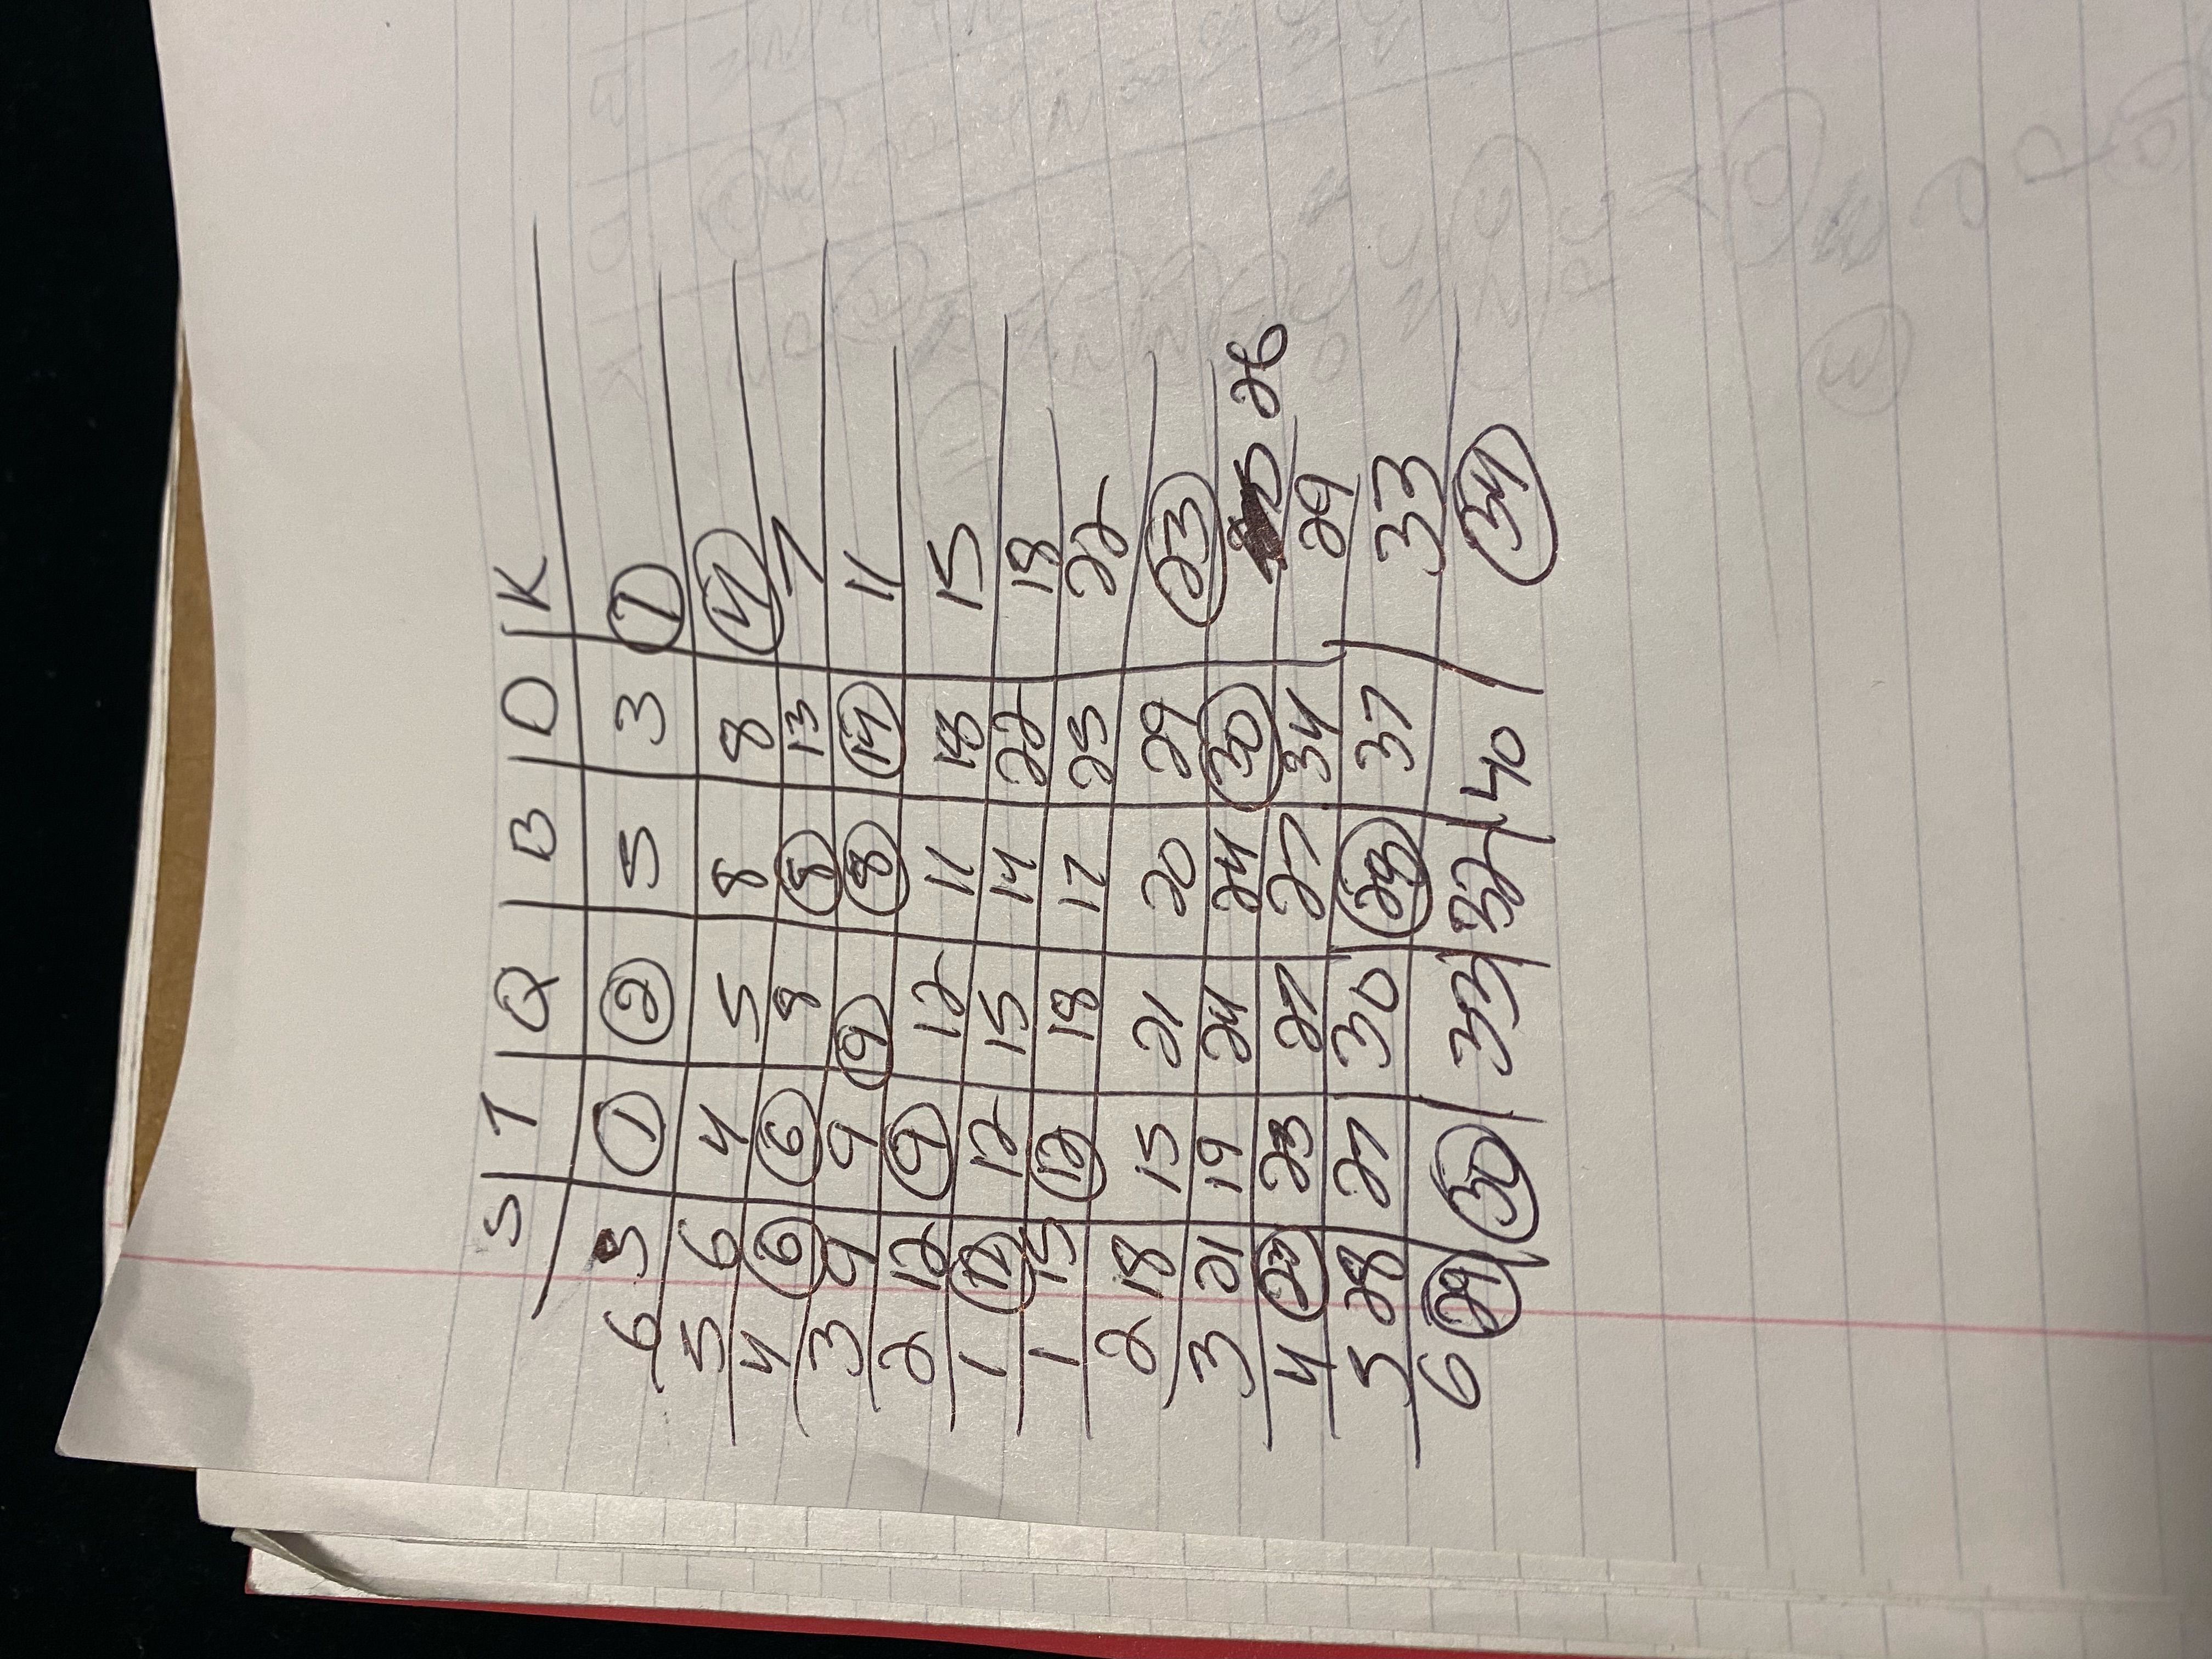 S T Q B D K
6 3 1 2 5 3 1
5 6 4 5 8 8 4
4 6 6 8 8 13 7
3 9 9 9 8 14 11
2 12 9 12 11 18 15
1 12 12 15 14 22 18
1 15 12 18 17 25 22
2 18 15 21 20 29 23
3 21 19 24 24 30 26
4 23 27 27 34 29
5 28 27 30 37 33
6 29 30 33 32 40 34